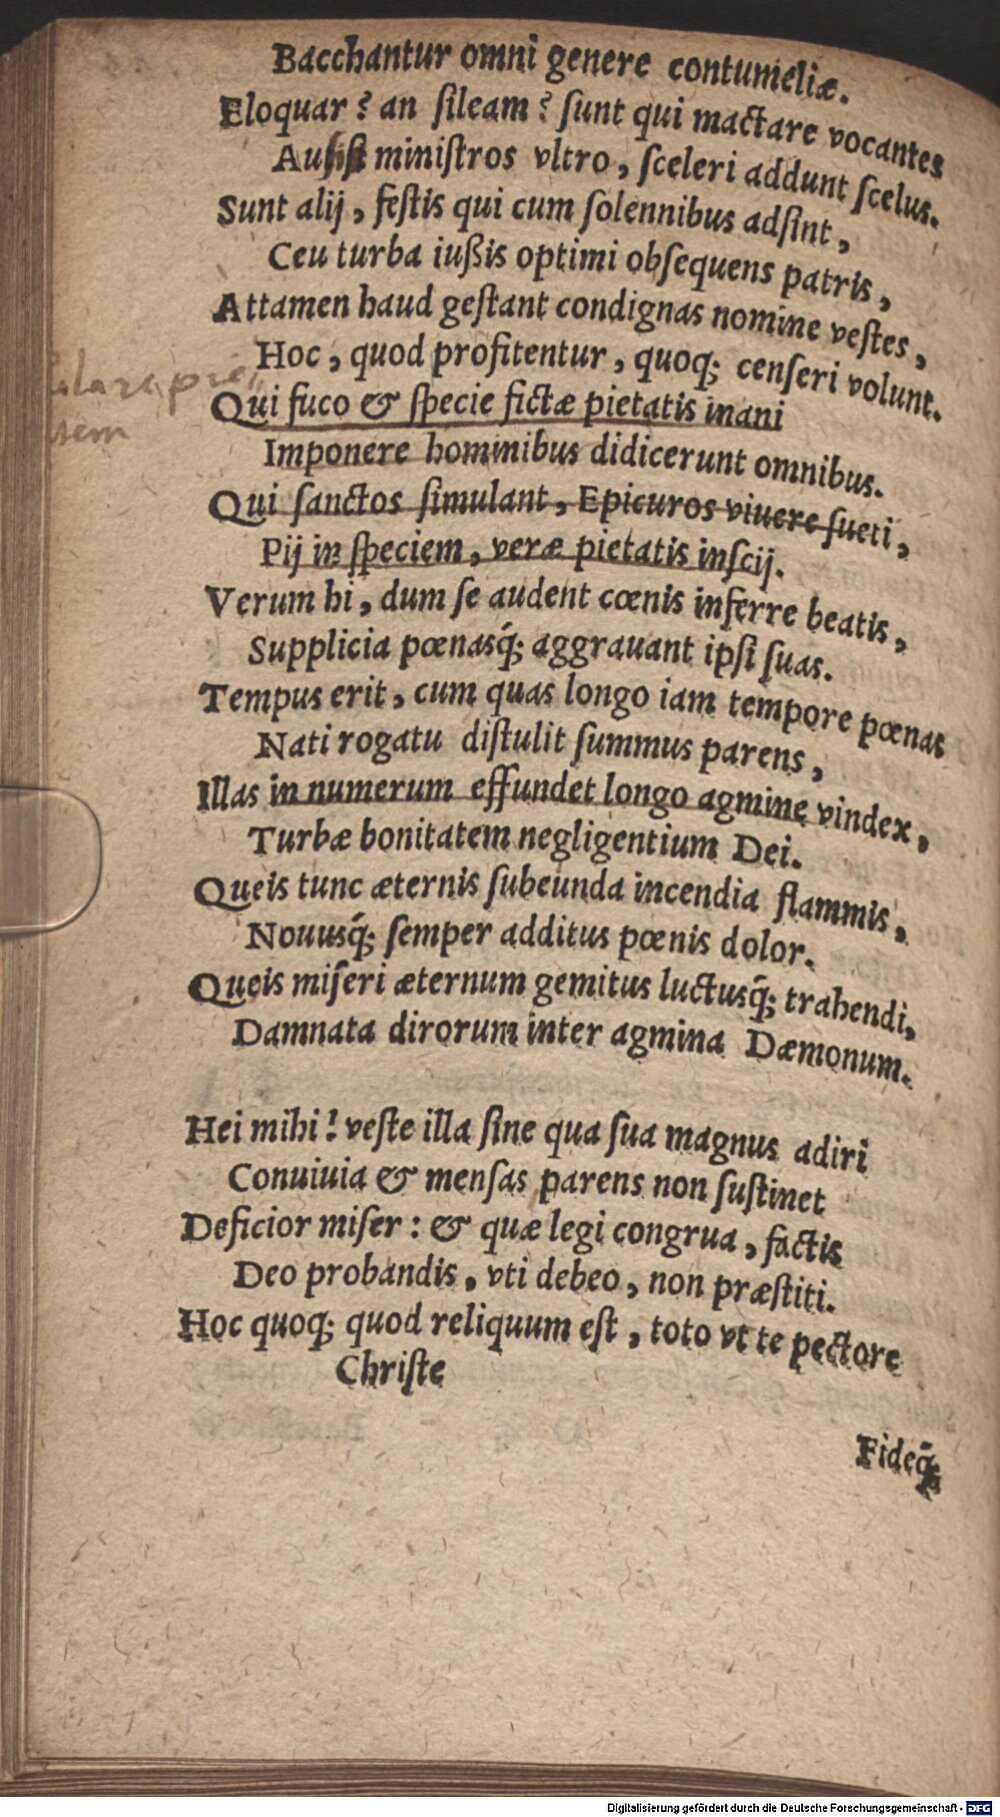 Bacchantur omni genere contumeliæ.
Eloquar? an ſileam? ſunt qui mactare vocantes
miniſtros vltro, ſceleri addunt ſcelus.
Sunt alij, feſtis qui cum ſolennibus adſint,
Ceu turba iußis optimi obſequens patris,
Attamen haud geſtant condignas nomine veſtes,
Hoc, quod profitentur, quoq; cenſeri volunt.
Qui fuco & ſpecie fictæ pietatis inani
Imponere hominibus didicerunt omnibus.
Qui ſanctos ſimulant, Epicuros viuere ſueti,
Pij in ſpeciem, veræ pietatis inſcij.
Verum hi, dum ſe audent cœnis inferre beatis,
Supplicia pœnasq́; aggrauant ipſi ſuas.
Tempus erit, cum quas longo iam tempore pœnas
Nati rogatu diſtulit ſummus parens,
Illas in numerum effundet longo agmine vindex,
Turbæ bonitatem negligentium Dei.
Queis tunc æternis ſubeunda incendia flammis,
Nouusq́; ſemper additus pœnis dolor.
Queis miſeri æternum gemitus luctusq́; trahendi,
Damnata dirorum inter agmina Dæmonum.
Hei mihi! veſte illa ſine qua ſua magnus adiri
Conuiuia & menſas parens non ſuſtinet
Deficior miſer: & quæ legi congrua, factis
Deo probandis, vti debeo, non præſtiti.
Hoc quoq; quod reliquum eſt, toto vt te pectore
Chriſte
Fideq́;
Digitalisierung gefördert durch die Deutsche Forschungsgemeinschaft - DFG